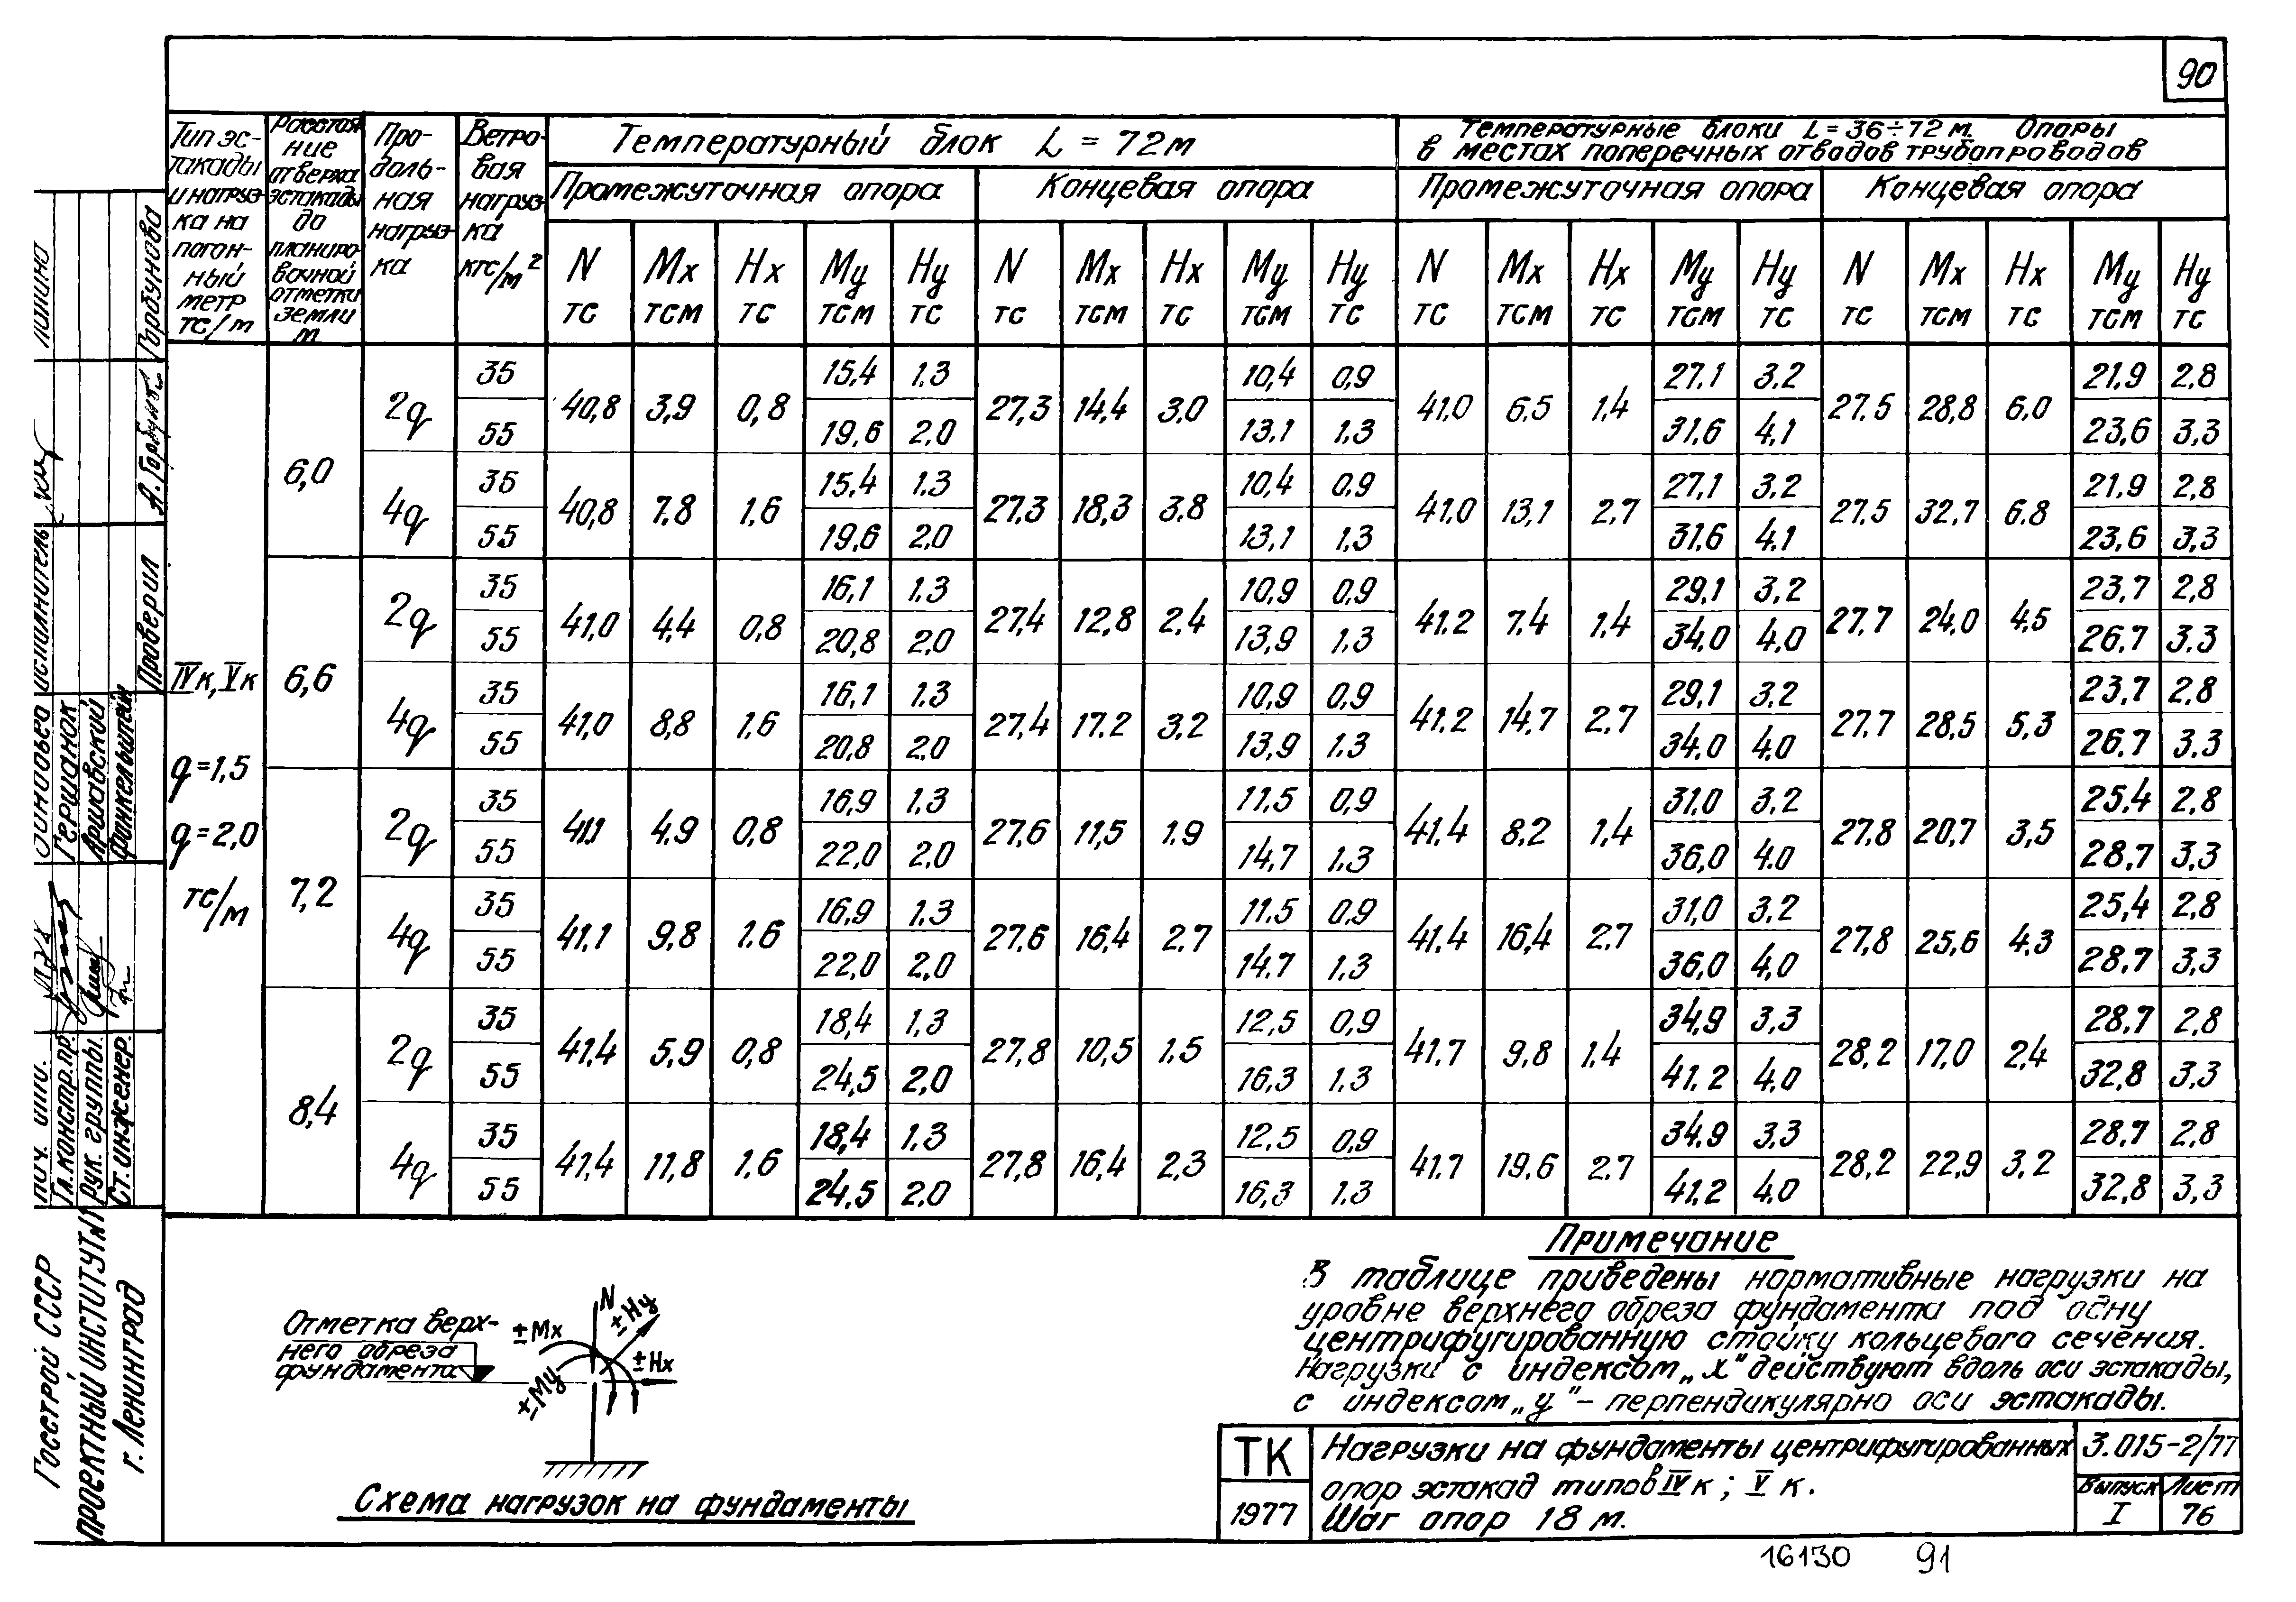 90
Тип эс-
такады
и нагруз-
ка на
погон-
ный
метр
тс/м
Расстоя-
ние
от верха
эстакады
до
планиро-
вочной
отметки
земли
м
Про-
доль-
ная
нагруз-
ка
Ветро-
вая
нагруз-
ка
кгс/м²
Температурный блок L = 72 м
Температурные блоки L = 36÷72 м. Опоры
в местах поперечных отводов трубопроводов
Промежуточная опора Концевая опора Промежуточная опора Концевая опора
N Mx Hx My Hy N Mx Hx My Hy N Mx Hx My Hy N Mx Hx My Hy
тс тсм тс тсм тс тс тсм тс тсм тс тс тсм тс тсм тс тс тсм тс тсм тс
IVк, Vк
q=1,5
q=2,0
тс/м
6,0
2q 35 40,8 3,9 0,8 15,4 1,3 27,3 14,4 3,0 10,4 0,9 41,0 6,5 1,4 27,1 3,2 27,5 28,8 6,0 21,9 2,8
55 19,6 2,0 13,1 1,3 31,6 4,1 23,6 3,3
4q 35 40,8 7,8 1,6 15,4 1,3 27,3 18,3 3,8 10,4 0,9 41,0 13,1 2,7 27,1 3,2 27,5 32,7 6,8 21,9 2,8
55 19,6 2,0 13,1 1,3 31,6 4,1 23,6 3,3
6,6
2q 35 41,0 4,4 0,8 16,1 1,3 27,4 12,8 2,4 10,9 0,9 41,2 7,4 1,4 29,1 3,2 27,7 24,0 4,5 23,7 2,8
55 20,8 2,0 13,9 1,3 34,0 4,0 26,7 3,3
4q 35 41,0 8,8 1,6 16,1 1,3 27,4 17,2 3,2 10,9 0,9 41,2 14,7 2,7 29,1 3,2 27,7 28,5 5,3 23,7 2,8
55 20,8 2,0 13,9 1,3 34,0 4,0 26,7 3,3
7,2
2q 35 41,1 4,9 0,8 16,9 1,3 27,6 11,5 1,9 11,5 0,9 41,4 8,2 1,4 31,0 3,2 27,8 20,7 3,5 25,4 2,8
55 22,0 2,0 14,7 1,3 36,0 4,0 28,7 3,3
4q 35 41,1 9,8 1,6 16,9 1,3 27,6 16,4 2,7 11,5 0,9 41,4 16,4 2,7 31,0 3,2 27,8 25,6 4,3 25,4 2,8
55 22,0 2,0 14,7 1,3 36,0 4,0 28,7 3,3
8,4
2q 35 41,4 5,9 0,8 18,4 1,3 27,8 10,5 1,5 12,5 0,9 41,7 9,8 1,4 34,9 3,3 28,2 17,0 2,4 28,7 2,8
55 24,5 2,0 16,3 1,3 41,2 4,0 32,8 3,3
4q 35 41,4 11,8 1,6 18,4 1,3 27,8 16,4 2,3 12,5 0,9 41,7 19,6 2,7 34,9 3,3 28,2 22,9 3,2 28,7 2,8
55 24,5 2,0 16,3 1,3 41,2 4,0 32,8 3,3
Отметка верх-
него обреза
фундамента
N
±Hy
±Mx
±Hx
±My
Схема нагрузок на фундаменты
Примечание
В таблице приведены нормативные нагрузки на
уровне верхнего обреза фундамента под одну
центрифугированную стойку кольцевого сечения.
Нагрузки с индексом „x" действуют вдоль оси эстакады,
с индексом „y" - перпендикулярно оси эстакады.
ТК
1977
Нагрузки на фундаменты центрифугированных
опор эстакад типов IVк; Vк.
Шаг опор 18 м.
3.015-2/77
Выпуск
I
Лист
76
16130 91
Госстрой СССР
Проектный институт №1
г. Ленинград
Гл. констр. пр.
Рук. группы
Ст. инженер.
Гершанок
Аршавский
Финкельштейн
Исполнитель
Проверил
Горбунова